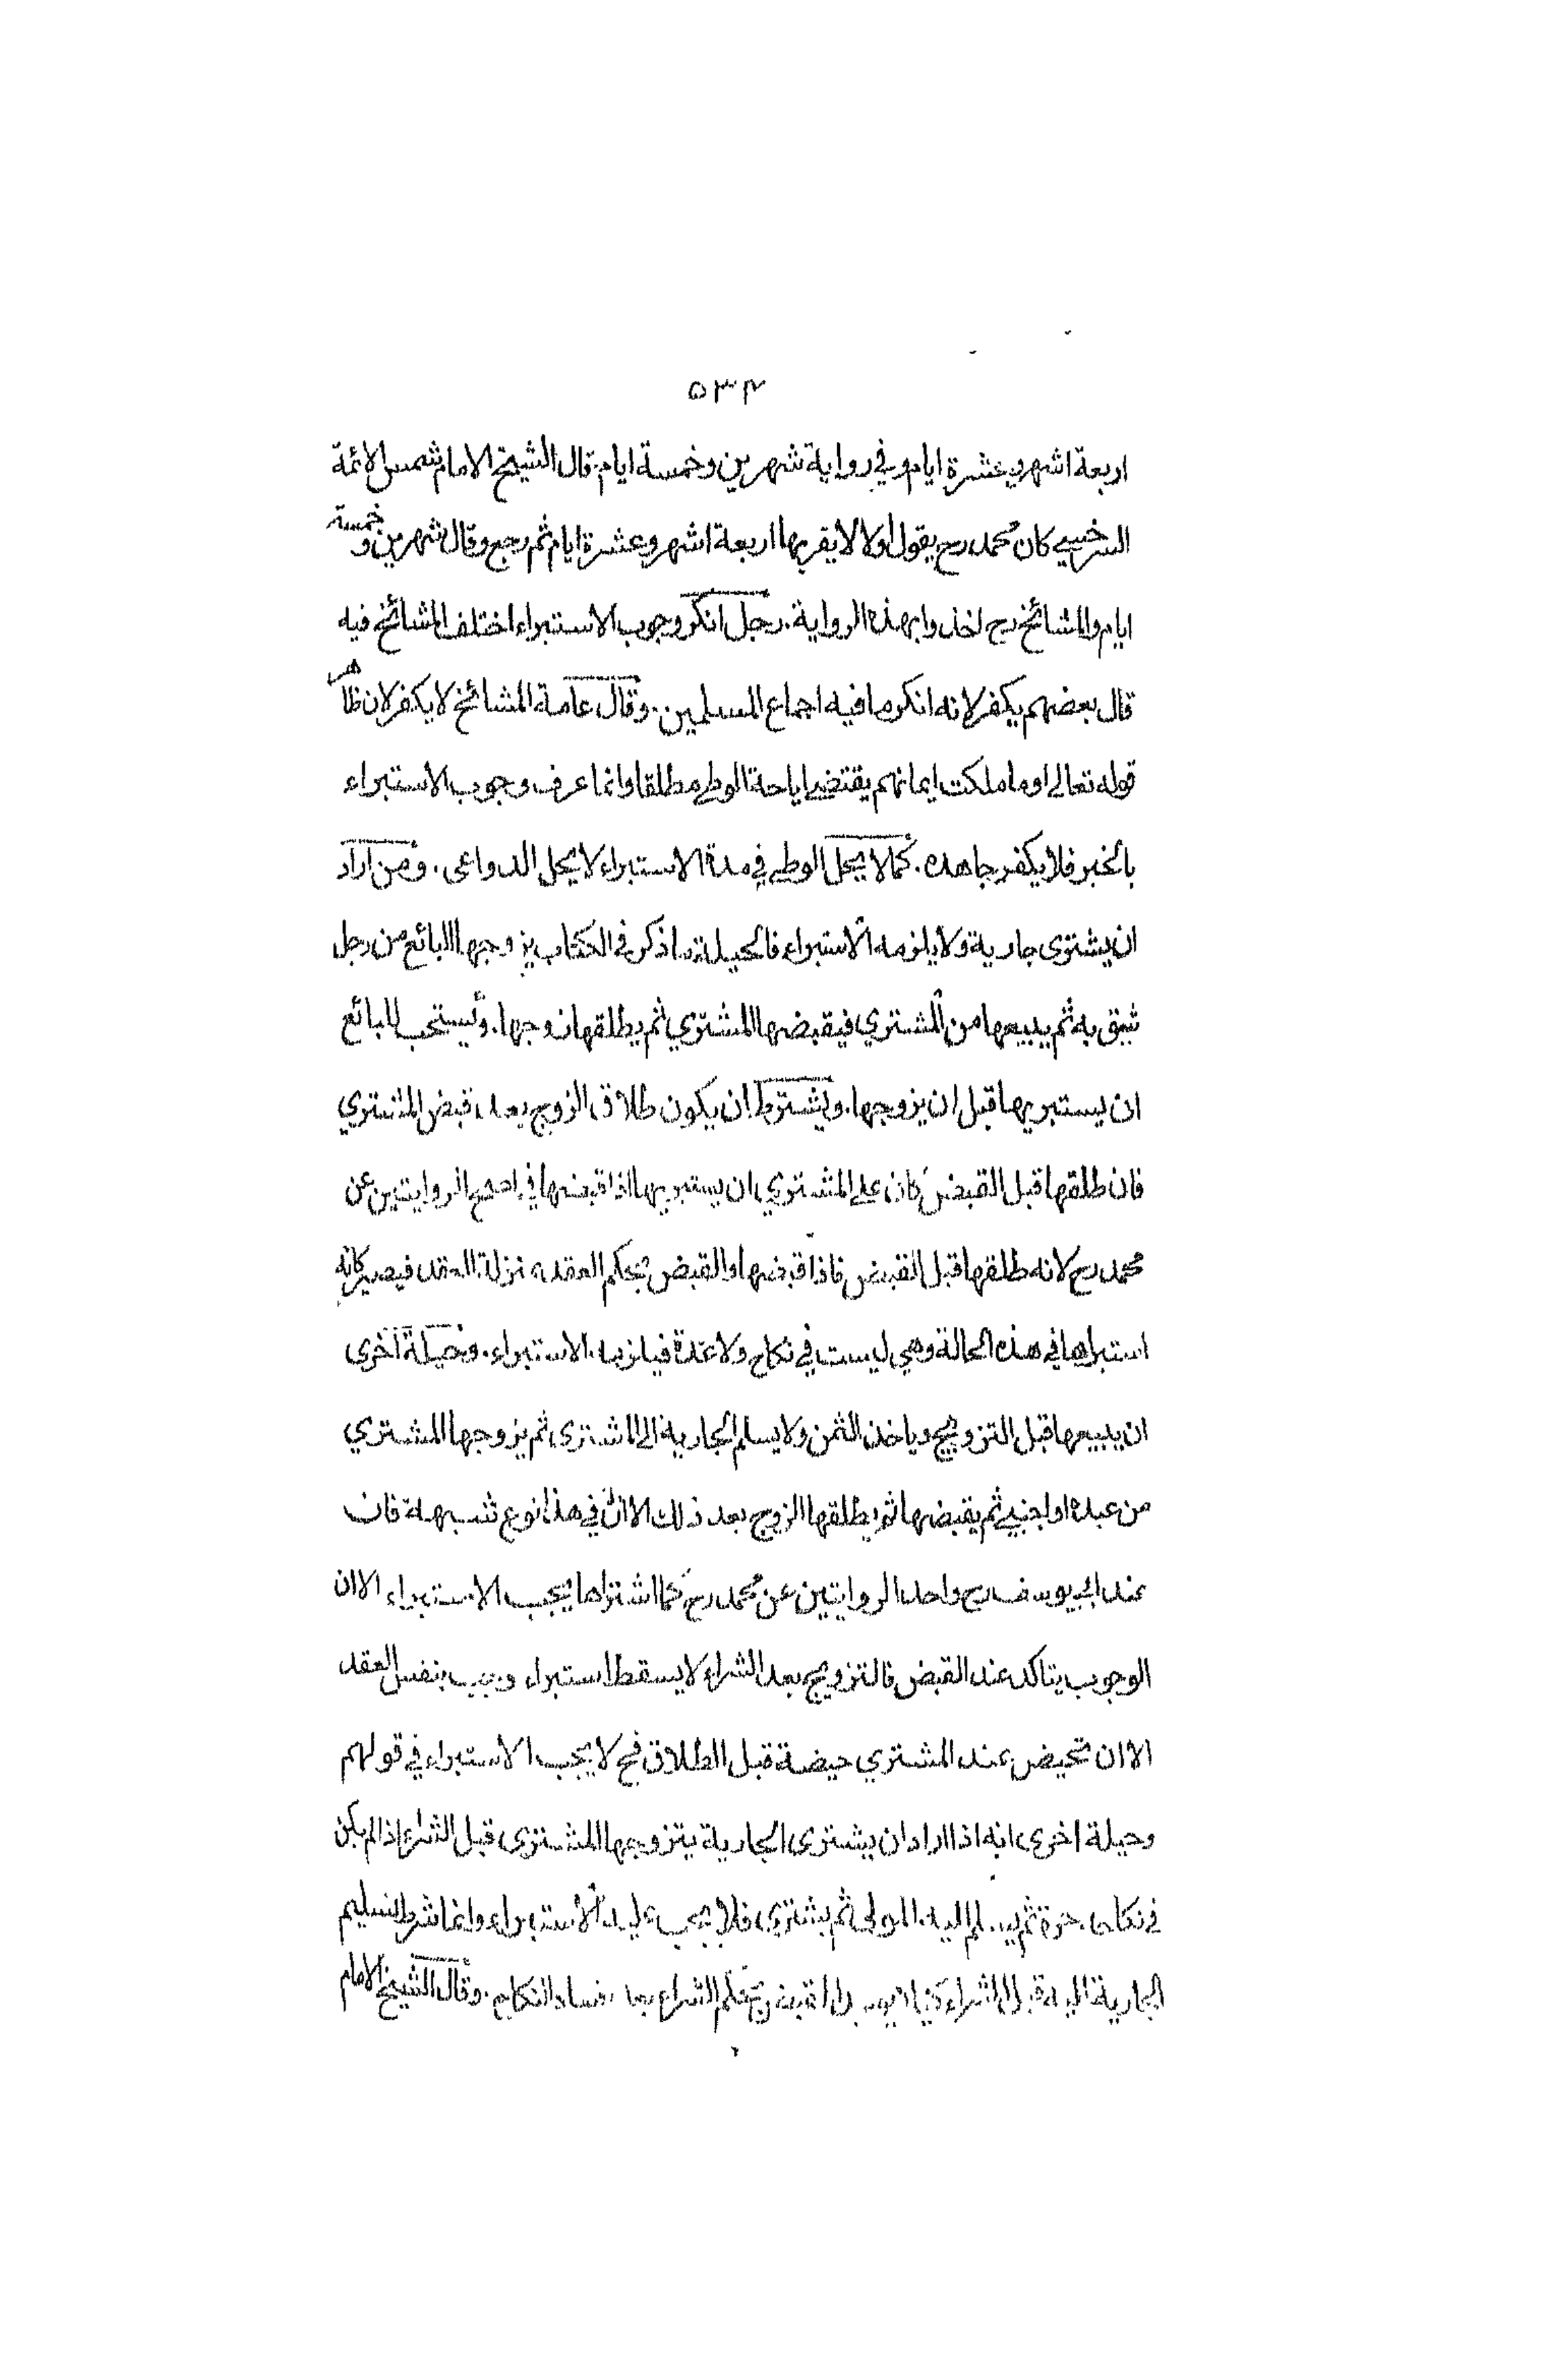 ٥٣٢
اربعة اشهر وعشرة ايام وفي رواية شهرين وخمسة ايام قال الشيخ الامام شمس الائمة
السرخسي كان محمد رح يقول اولا لا يقربها اربعة اشهر وعشرة ايام ثم رجع وقال شهرين وخمسة
ايام والمشائخ رح اخذوا بهذه الرواية . رجل انكر وجوب الاستبراء اختلف المشائخ فيه
قال بعضهم يكفر لانه انكر ما فيه اجماع المسلمين . وقال عامة المشائخ لا يكفر لان ظاهر
قوله تعالى او ما ملكت ايمانهم يقتضي اباحة الوطي مطلقا وانما عرف وجوب الاستبراء
بالخبر فلا يكفر جاحده . كما لا يحل الوطي في مدة الاستبراء لا يحل الدواعى . ومن اراد
ان يشترى جارية ولا يلزمه الاستبراء فالحيلة ما ذكر في الكتاب يزوجها البائع من رجل
يثق به ثم يبيعها من المشتري فيقبضها المشتري ثم يطلقها زوجها . ويستحب للبائع
ان يستبريها قبل ان يزوجها . ويشترط ان يكون طلاق الزوج بعد قبض المشتري
فان طلقها قبل القبض كان على المشتري ان يستبريها اذا قبضها في اصح الروايتين عن
محمد رح لانه طلقها قبل القبض فاذا قبضها والقبض بحكم العقد بمنزلة العقد فيصير كانه
اشتراها في هذه الحالة وهي ليست في نكاح ولا عدة فيلزمه الاستبراء . وحيلة اخرى
ان يبيعها قبل التزويج وياخذ الثمن ولا يسلم الجارية الى المشترى ثم يزوجها المشتري
من عبده او اجنبي ثم يقبضها ثم يطلقها الزوج بعد ذلك الا ان في هذا نوع شبهة فان
عند ابي يوسف رح واحد الروايتين عن محمد رح كما اشتراها يجب الاستبراء الا ان
الوجوب يتاكد عند القبض فالتزويج بعد الشراء لا يسقط استبراء وجب بنفس العقد
الا ان تحيض عند المشتري حيضة قبل الطلاق فح لا يجب الاستبراء في قولهم
وحيلة اخرى انه اذا اراد ان يشترى الجارية يتزوجها المشترى قبل الشراء اذا لم يكن
في نكاحه حرة ثم يسلم اليه المولى ثم يشتري فلا يجب عليه الاستبراء وانما شرط تسليم
الجارية اليه قبل الشراء كيلا يوجد القبض بحكم الشراء بعد فساد النكاح . وقال الشيخ الامام